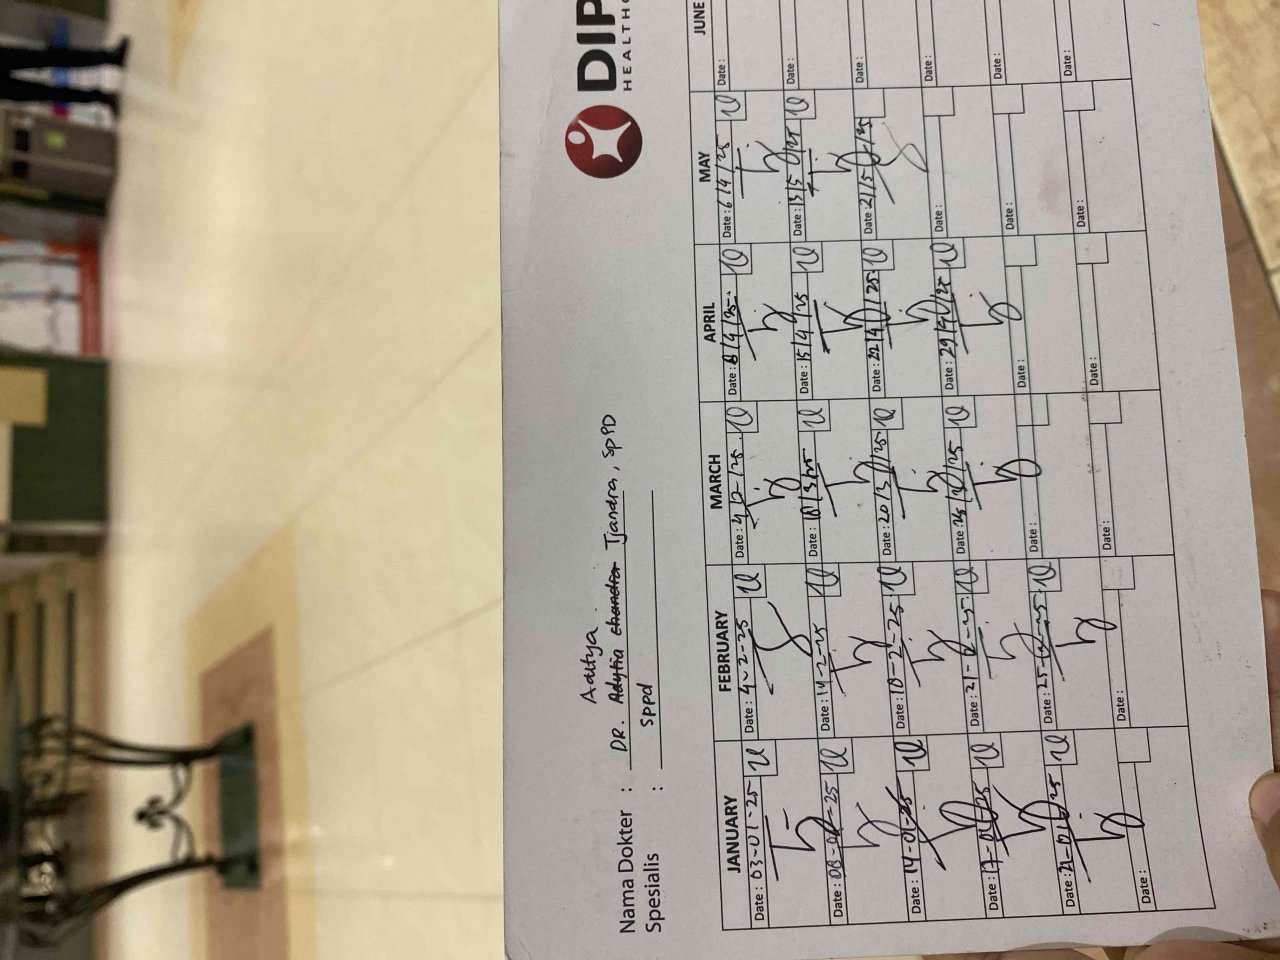 DIP
HEALTHC
Aditya
Nama Dokter : DR. Adytia chandra Tjandra, SpPD
Spesialis : Sppd
JANUARY FEBRUARY MARCH APRIL MAY JUNE
Date: 03-01-25 Date: 4-2-25 Date: Date: 8/4/25 Date: 6/4/25 Date:
Date: 08-01-25 Date: 14-2-25 Date: 18/3/25 Date: 15/4/25 Date: 13/5/25 Date:
Date: 14-01-25 Date: 18-2-25 Date: 20/3/25 Date: 22/4/25 Date: 21/5/25 Date:
Date: 17-01-25 Date: 21-2-25 Date: 25/3/25 Date: 29/4/25 Date: Date:
Date: 21-01-25 Date: 25-2-25 Date: Date: Date: Date:
Date: Date: Date: Date: Date: Date: